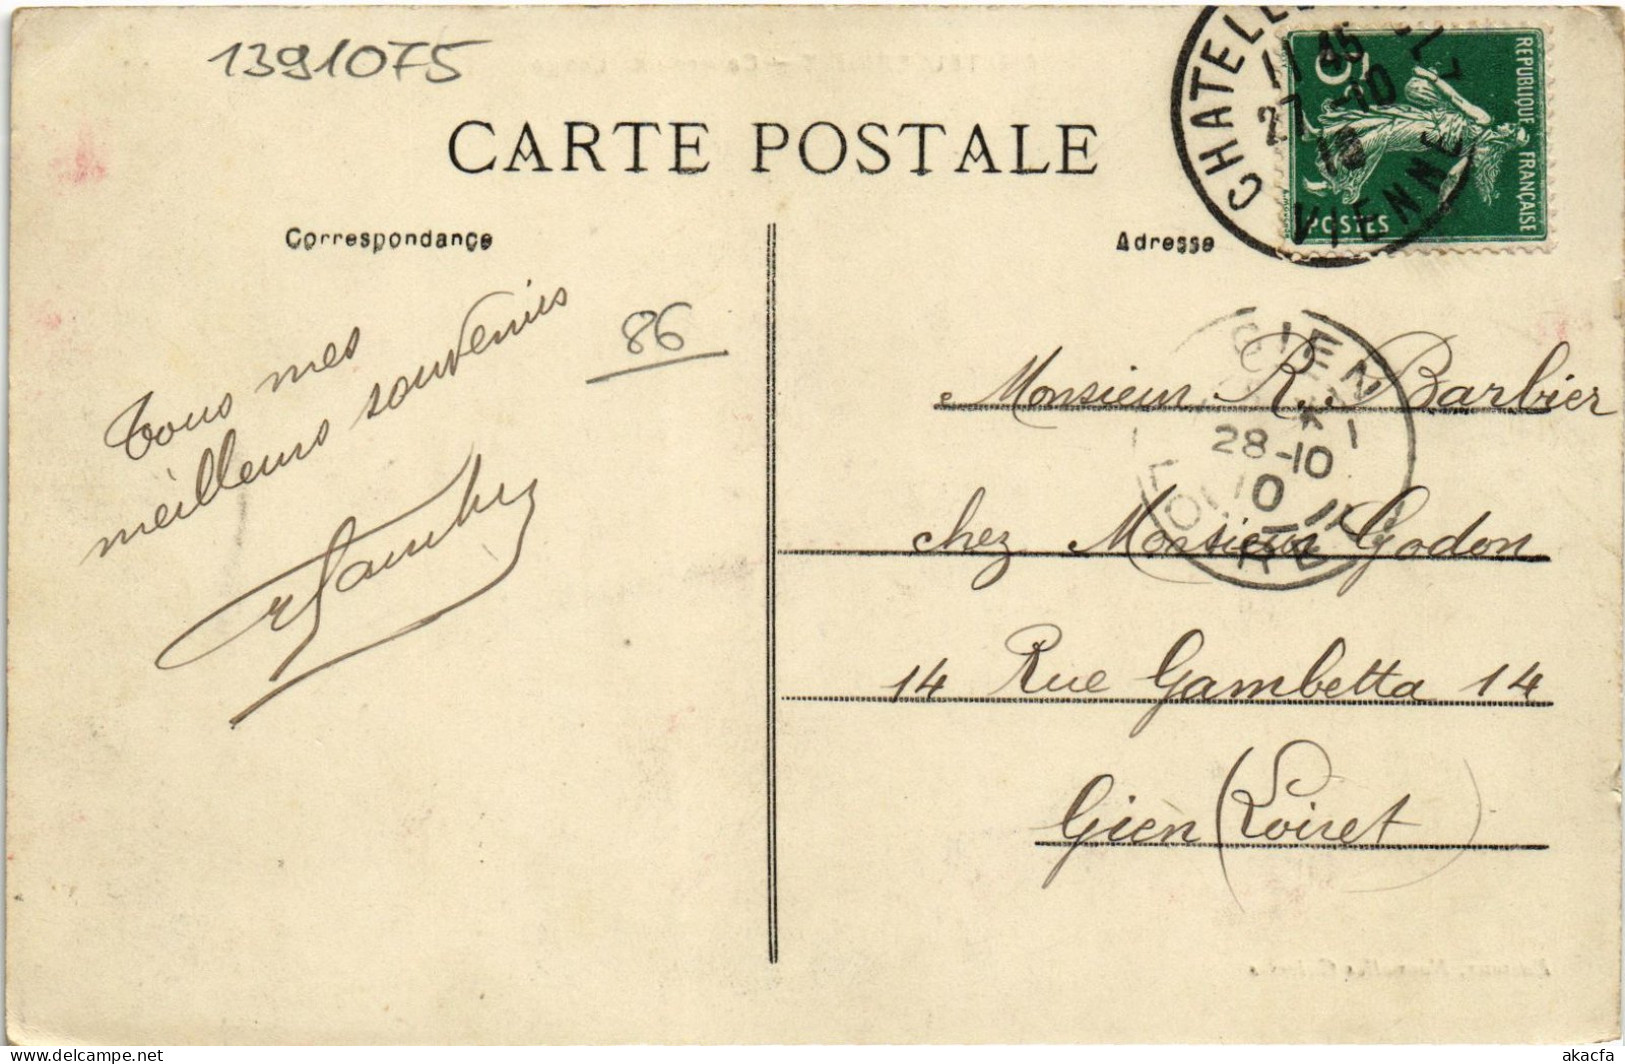 1391075
CARTE POSTALE
Correspondance
Adresse
CHATELL
11 45
27 -10
10
VIENNE
5
REPUBLIQUE FRANÇAISE
POSTES
Tous mes
meilleurs souvenirs
86
GIEN
28-10
10
Monsieur R. Barbier
chez Monsieur Godon
14 Rue Gambetta 14
Gien (Loiret)
delcampe.net
akacfa